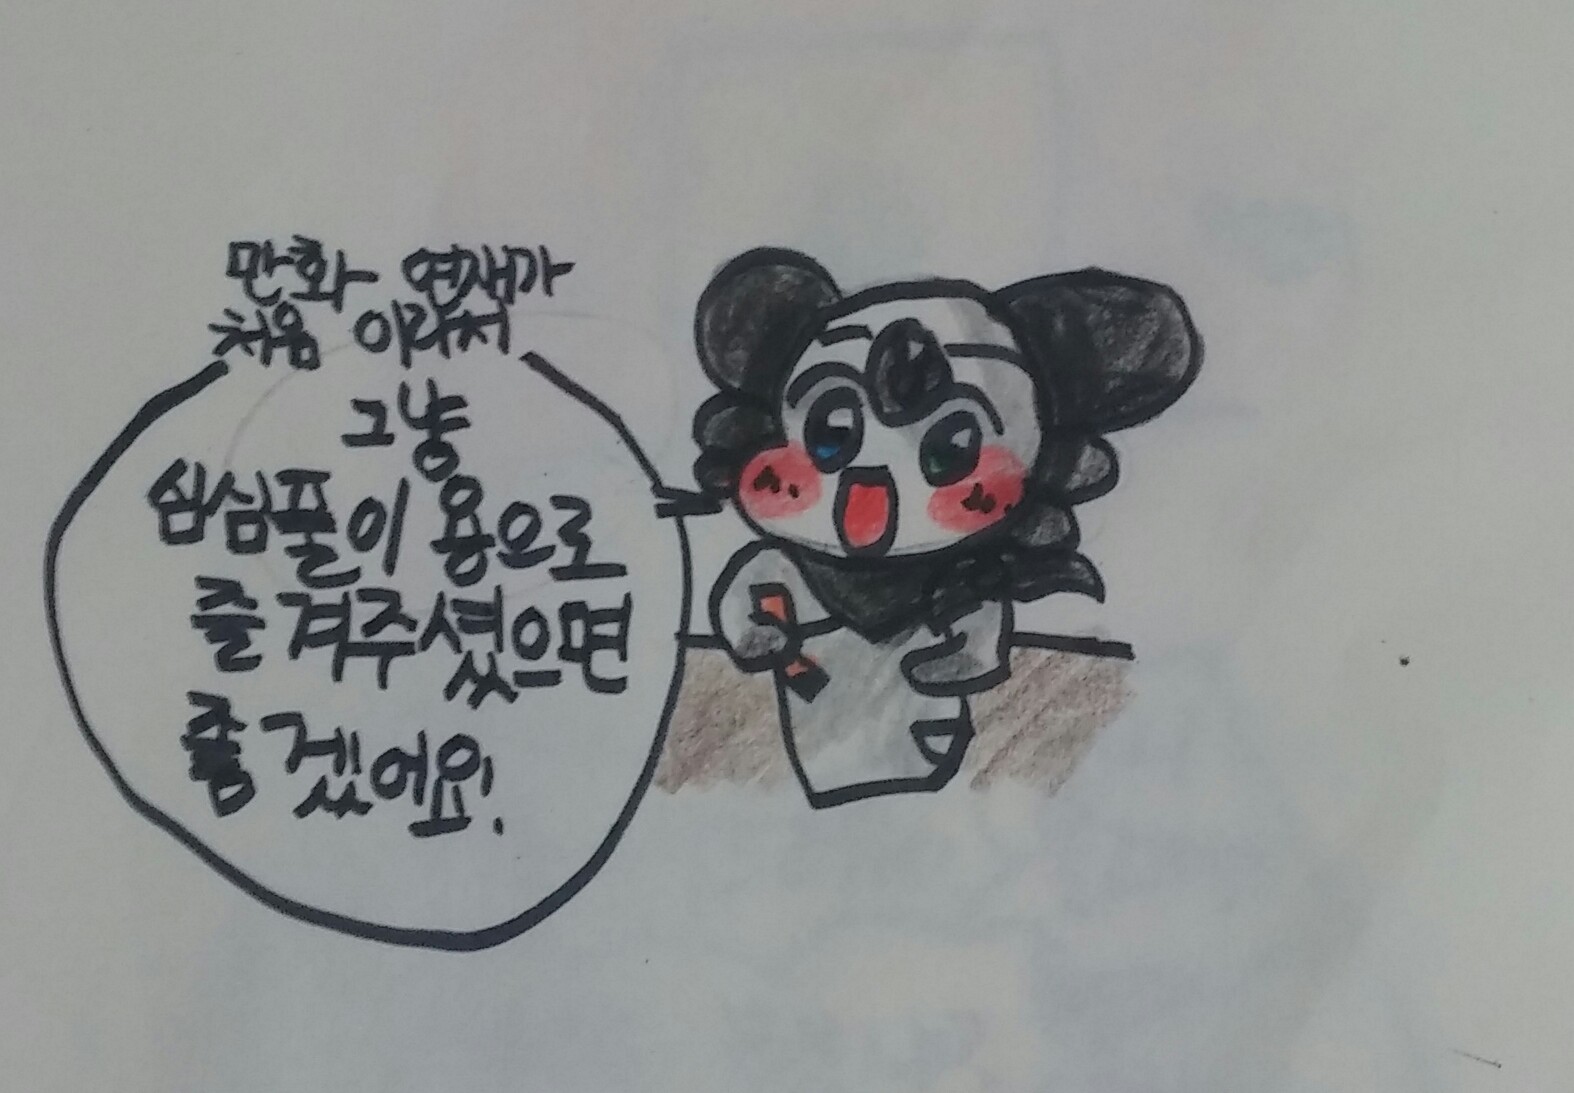 만화 연재가
처음 이라서
그냥
심심풀이 용으로
즐겨주셨으면
좋겠어요!